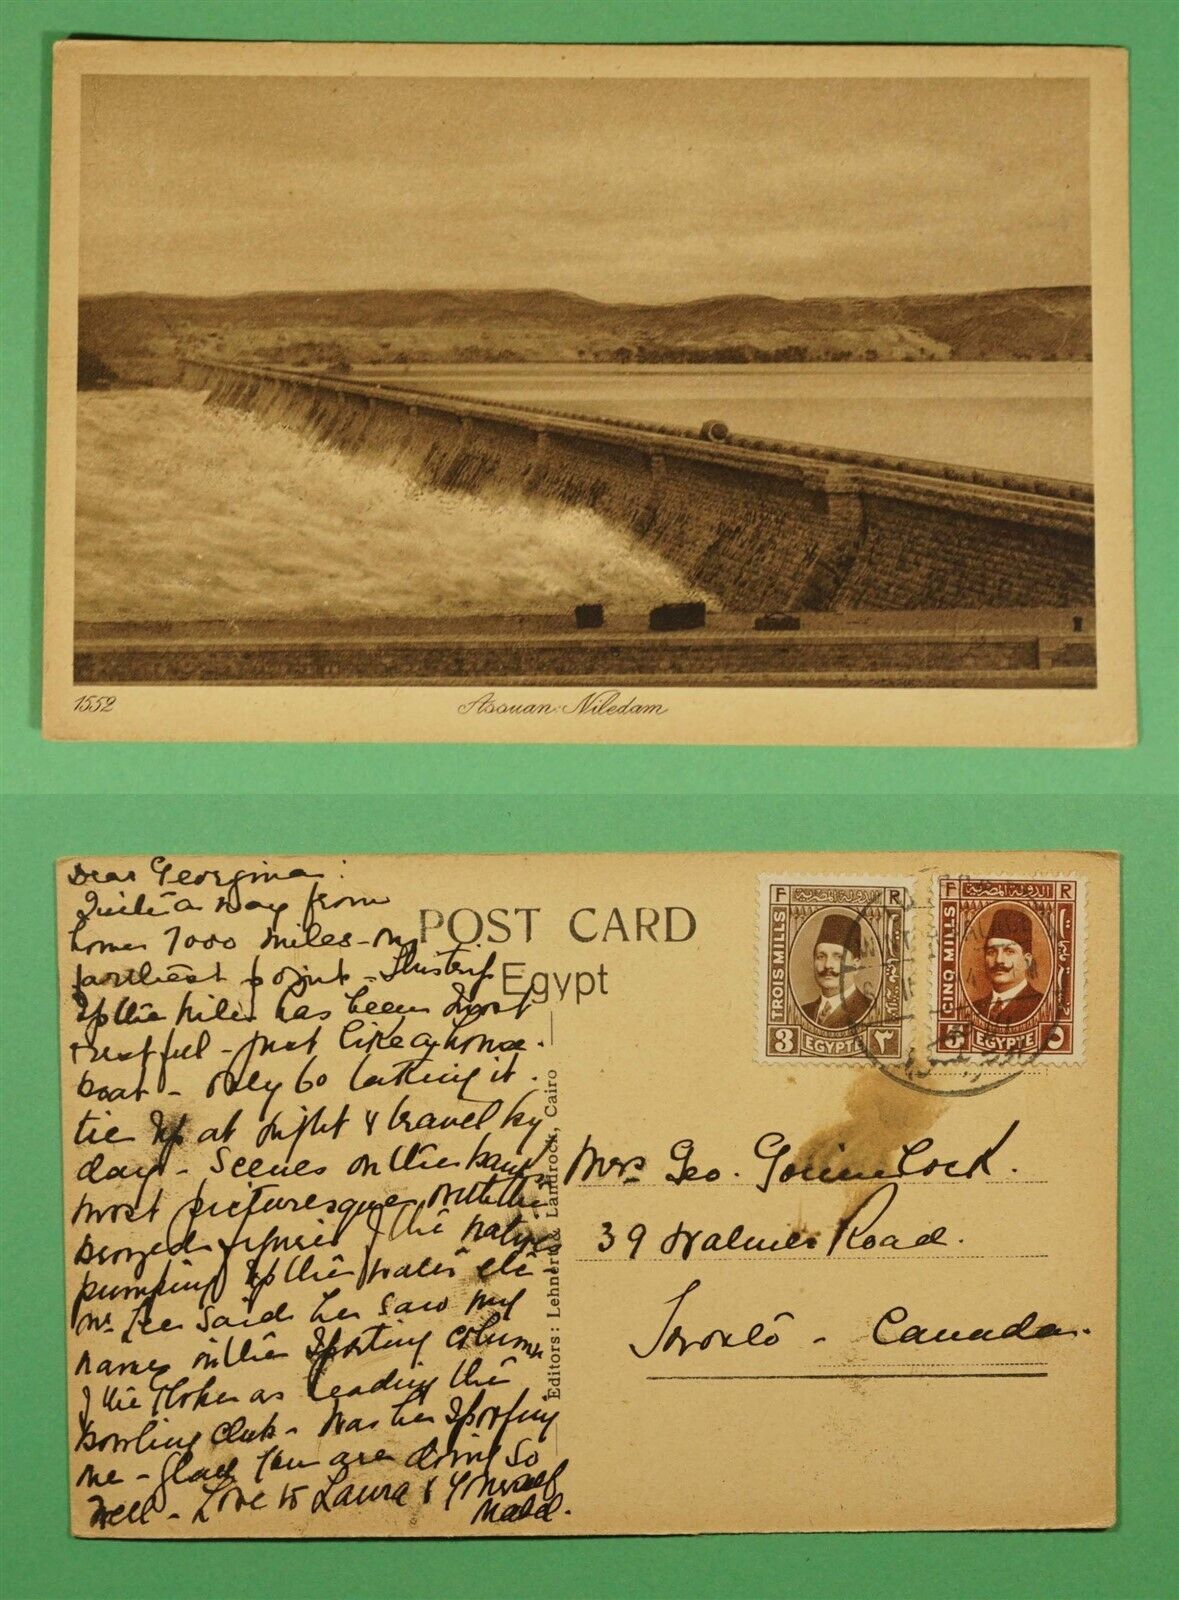 1552
Assuan: Niledam
Dear Georgina:
Quite a way from
home 7000 miles - on
farthest point - This trip
up the Nile has been most
restful - just like a house
boat - only 60 taking it.
tie up at night & travel by
day - Scenes on the bank
most picturesque with the
bronzed figures of the natives
pumping up the water etc -
Mr. Lee said he saw my
name in the Sporting column
of the Globe as leading the
Bowling Club - Was he spoofing
me - glad you are doing so
well - Love to Laura & yourself
Mabel.
POST CARD
Egypt
Editors: Lehnert & Landrock, Cairo
F R
الدولة المصرية
TROIS MILLS
3 EGYPTE ٣
F R
الدولة المصرية
CINQ MILLS
5 EGYPTE ٥
Mrs Geo. Gouinlock.
39 Walmer Road.
Toronto - Canada.